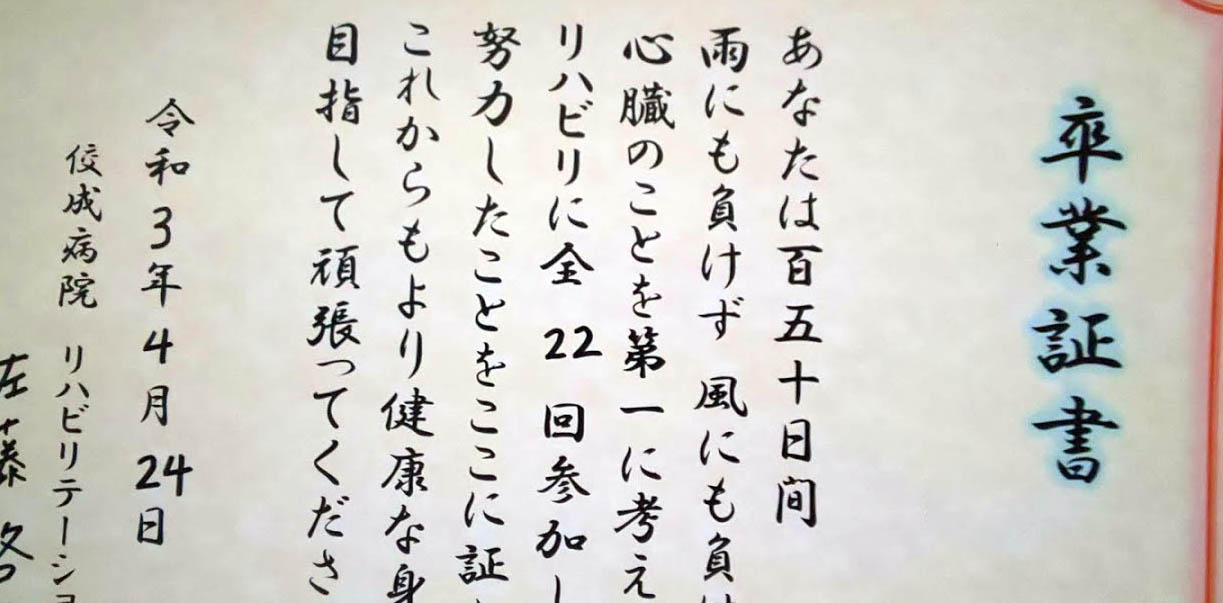 卒業証書
あなたは百五十日間
雨にも負けず 風にも負け
心臓のことを第一に考え
リハビリに全 22 回参加し
努力したことをここに証
これからもより健康な身
目指して頑張ってくださ
令和 3 年 4 月 24 日
佼成病院 リハビリテーショ